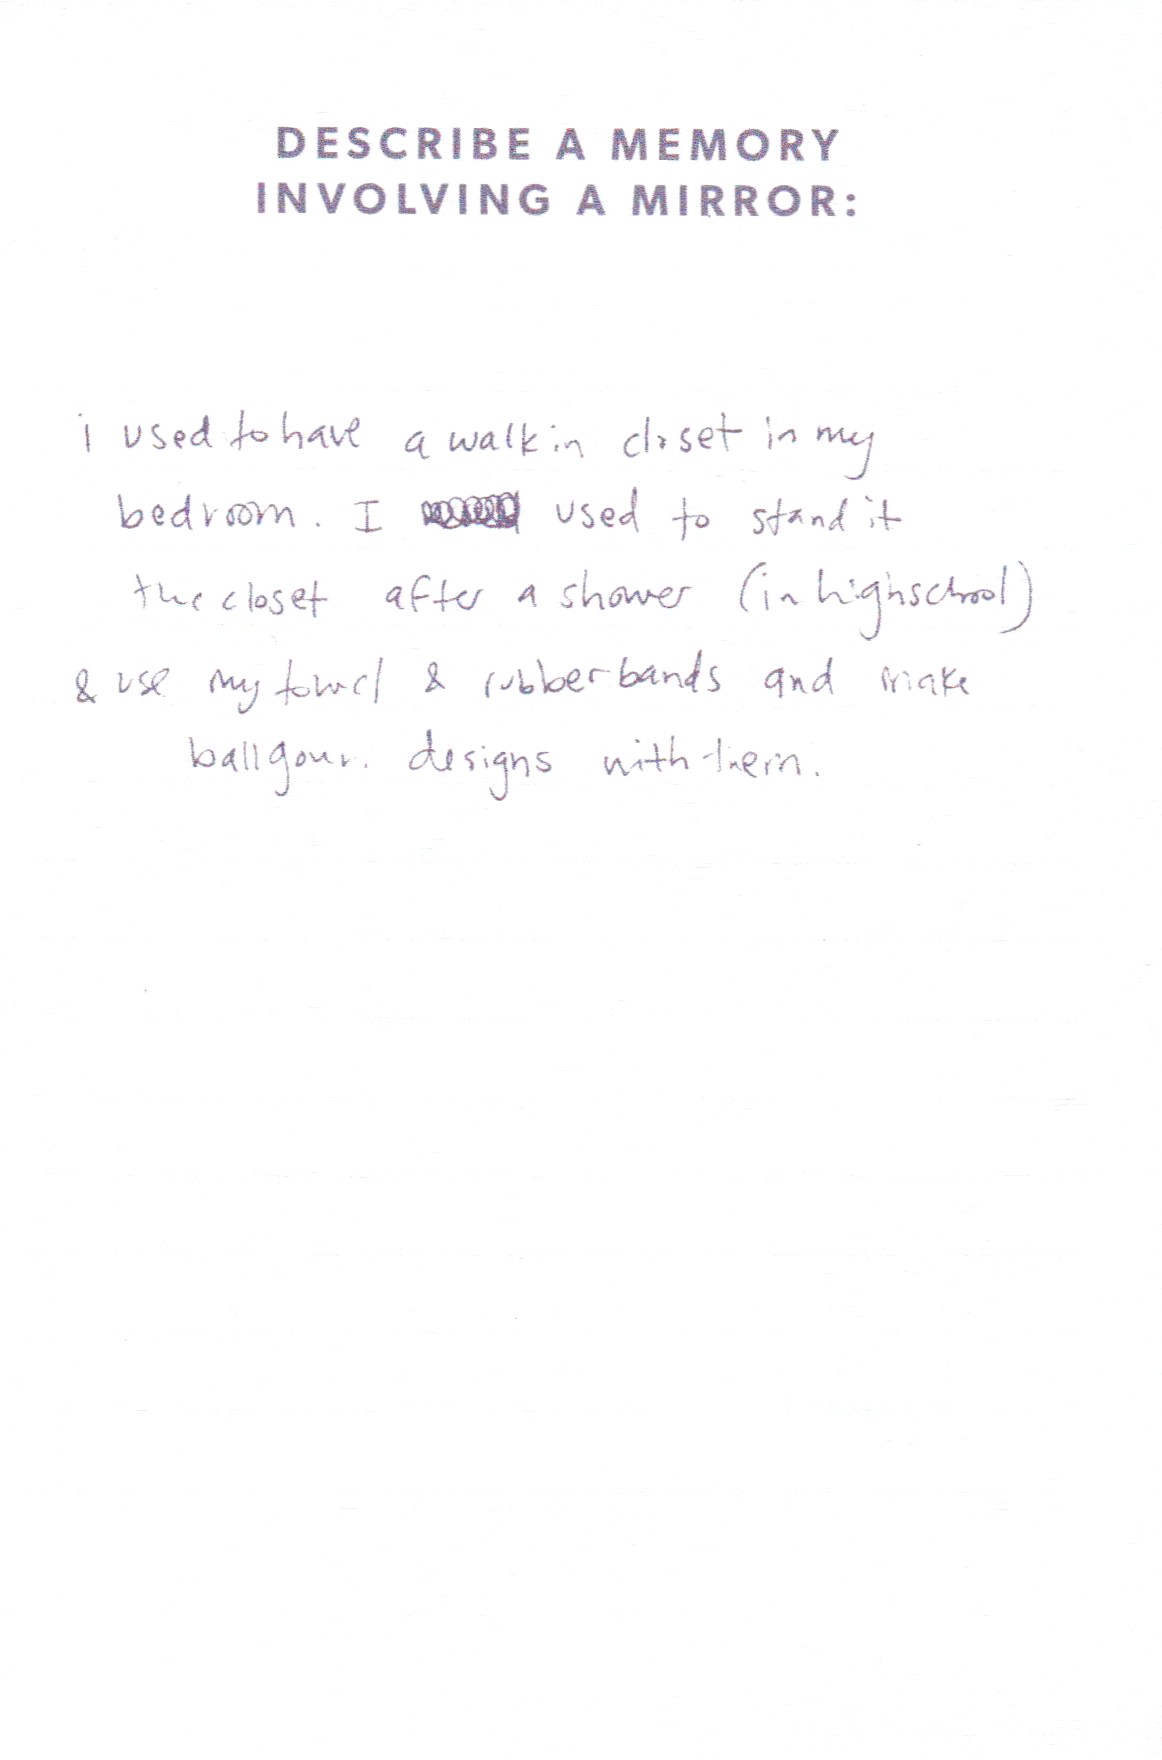 DESCRIBE A MEMORY
INVOLVING A MIRROR:
i used to have a walk in closet in my
bedroom. I used to stand it
the closet after a shower (in highschool)
& use my towel & rubberbands and make
ballgown designs with them.